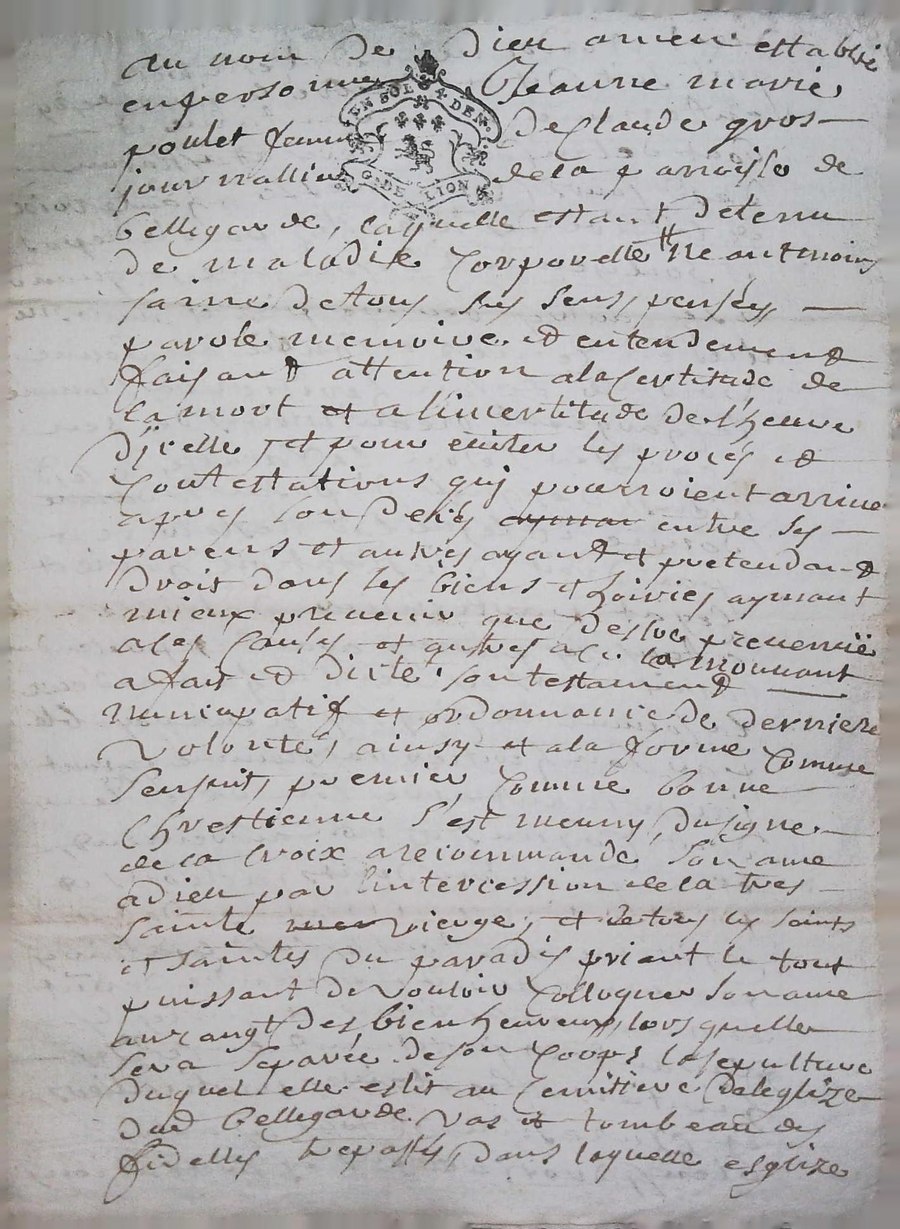 au nom de Dieu amen establie
en personne Jeanne marie
poulet femme de Claude gros
UN SOL 4 DEN.
G. DE LION
journallier de la parroisse de
bellegarde, laquelle estant detenu
de maladie corporelle neantmoins
saine de tous ses sens, pensées
parole memoire et entendement
faisant attention a la certitude de
la mort et a l'incertitude de l'heure
d'icelle, et pour eviter les procés et
contestations qui pourroient arriver
apres son decés aymant entre ses
parens et autres ayant et pretendant
droit dans les biens et hoiries aymant
mieux prevenir que destre prevenuë
a fait et dicté son testament
nuncupatif et ordonnance de derniere
volonté, ainsy et a la forme comme
sensuit, premier comme bonne
Chrestienne s'est meuny du signe
de la croix a recommandé son ame
a dieu par l'intercession de la tres
sainte mere vierge, et de tous les saints
et saintes du paradis priant le tout
puissant de vouloir colloquer son ame
au rangt des bienheureux, lors quelle
sera separée de son corps la sepulture
duquel elle eslit au cemitiere de leglize
dud bellegarde vas et tombeau des
fidelles trepassés, dans laquelle esglize